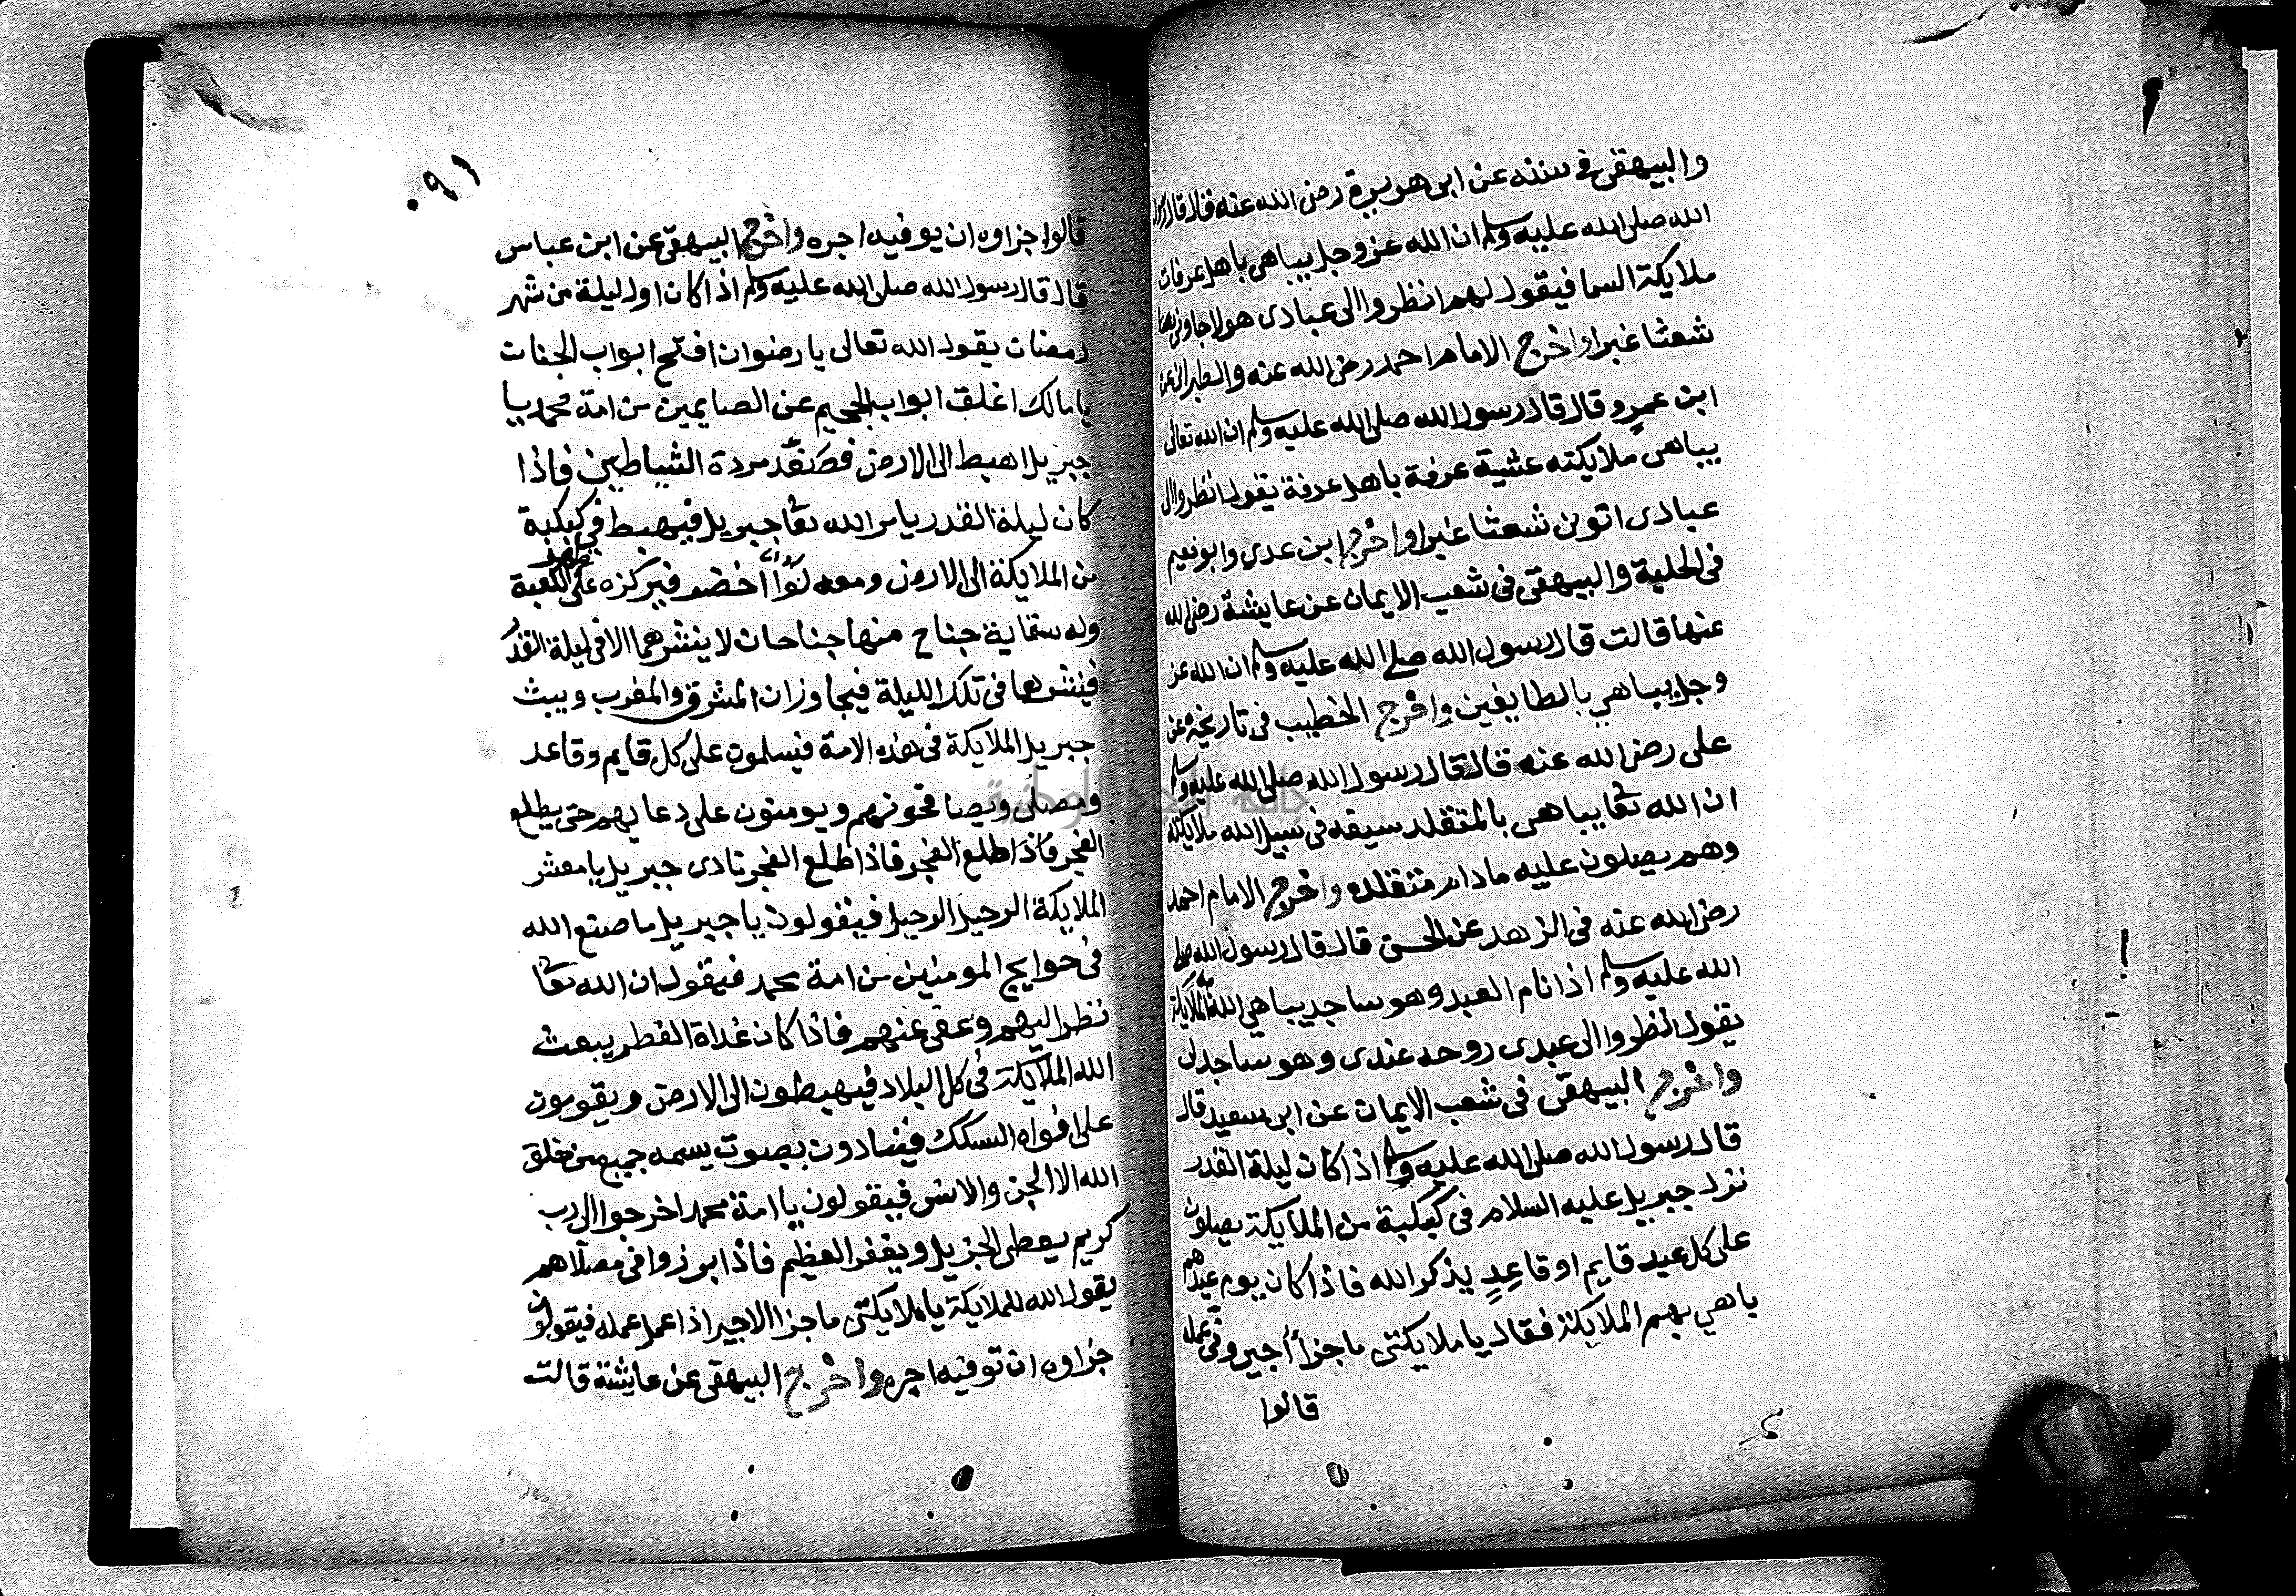 والبيهقى فى سننه عن ابى هريرة رضى الله عنه قال قال رسول
الله صلى الله عليه وسلم ان الله عز وجل يباهى باهل عرفات
ملايكة السما فيقول لهم انظروا الى عبادى هولا جاونى
شعثا غبرا واخرج الامام احمد رضى الله عنه والطبرانى عن
ابن عمرو قال قال رسول الله صلى الله عليه وسلم ان الله تعالى
يباهى ملايكته عشية عرفة باهل عرفة يقول انظروا الى
عبادى اتونى شعثا غبرا واخرج ابن عدى وابو نعيم
فى الحلية والبيهقى فى شعب الايمان عن عايشة رضى الله
عنها قالت قال رسول الله صلى الله عليه وسلم ان الله عز
وجل يباهي بالطايفين واخرج الخطيب فى تاريخه عن
على رضى الله عنه قال قال رسول الله صلى الله عليه وسلم
ان الله تعا يباهى بالمتقلد سيفه فى سبيل الله ملايكته
وهم يصلون عليه مادام متقلده واخرج الامام احمد
رضى الله عنه فى الزهد عن الحسن قال قال رسول الله صلى
الله عليه وسلم اذا نام العبد وهو ساجد يباهي الله به الملايكة
يقول انظروا الى عبدى روحه عندى وهو ساجد لى
واخرج البيهقى فى شعب الايمان عن ابى سعيد قال
قال رسول الله صلى الله عليه وسلم اذا كان ليلة القدر
نزل جبريل عليه السلام فى كبكبة من الملايكة يصلون
على كل عبد قايم او قاعدٍ يذكر الله فاذا كان يوم عيدهم
باهي بهم الملايكة فقال يا ملايكتى ما جزأ أجير وفى عمله
قالوا
٩١
قالوا جزاوه ان يوفيه اجره واخرج البيهقى عن ابن عباس
قال قال رسول الله صلى الله عليه وسلم اذا كان اول ليلة من شهر
رمضان يقول الله تعالى يا رضوان افتح ابواب الجنات
يا مالك اغلق ابواب الجحيم عن الصايمين من امة محمد يا
جبريل اهبط الى الارض فصَفّد مردة الشياطين فاذا
كان ليلة القدر يامر الله تعا جبريل فيهبط فى كبكبة
من الملايكة الى الارض ومعه لوأ اخضر فيركزه على ظهر الكعبة
وله ستماية جناح منها جناحان لا ينشرهما الا فى ليلة القدر
فينشرهما فى تلك الليلة فيجاوزان المشرق والمغرب ويبث
جبريل الملايكة فى هذه الامة فيسلمون على كل قايم وقاعد
ومصلى ويصافحونهم ويومنون على دعايهم حتى يطلع
الفجر فاذا طلع الفجر فاذا طلع الفجر نادى جبريل يا معشر
الملايكة الرحيل الرحيل فيقولون يا جبريل ما صنع الله
فى حوايج المومنين من امة محمد فيقول ان الله تعا
نظر اليهم وعفى عنهم فاذا كان غداة الفطر يبعث
الله الملايكة فى كل البلاد فيهبطون الى الارض ويقومون
على افواه السكك فينادون بصوت يسمعه جميع من خلق
الله الا الجن والانس فيقولون يا امة محمد اخرجوا الى رب
كريم يعطى الجزيل ويغفر العظيم فاذا برزوا فى مصلاهم
يقول الله للملايكة يا ملايكتى ما جزا الاجير اذا عمل عمله فيقولون
جزاوه ان توفيه اجره واخرج البيهقى عن عايشة قالت